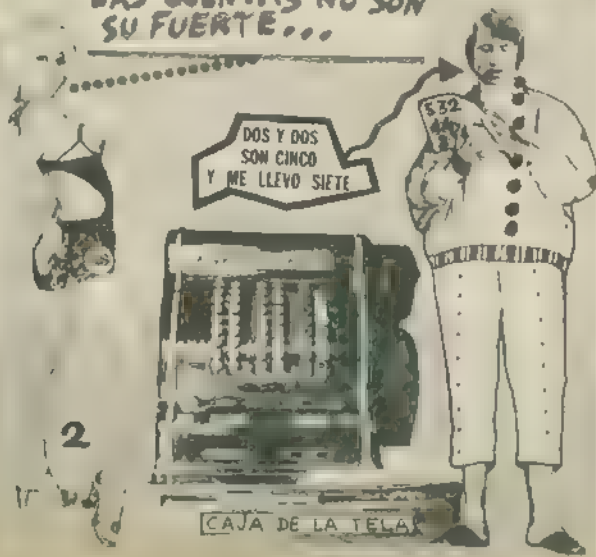 LAS CUENTAS NO SON
SU FUERTE...
DOS Y DOS
SON CINCO
Y ME LLEVO SIETE
532
2
CAJA DE LA TELA